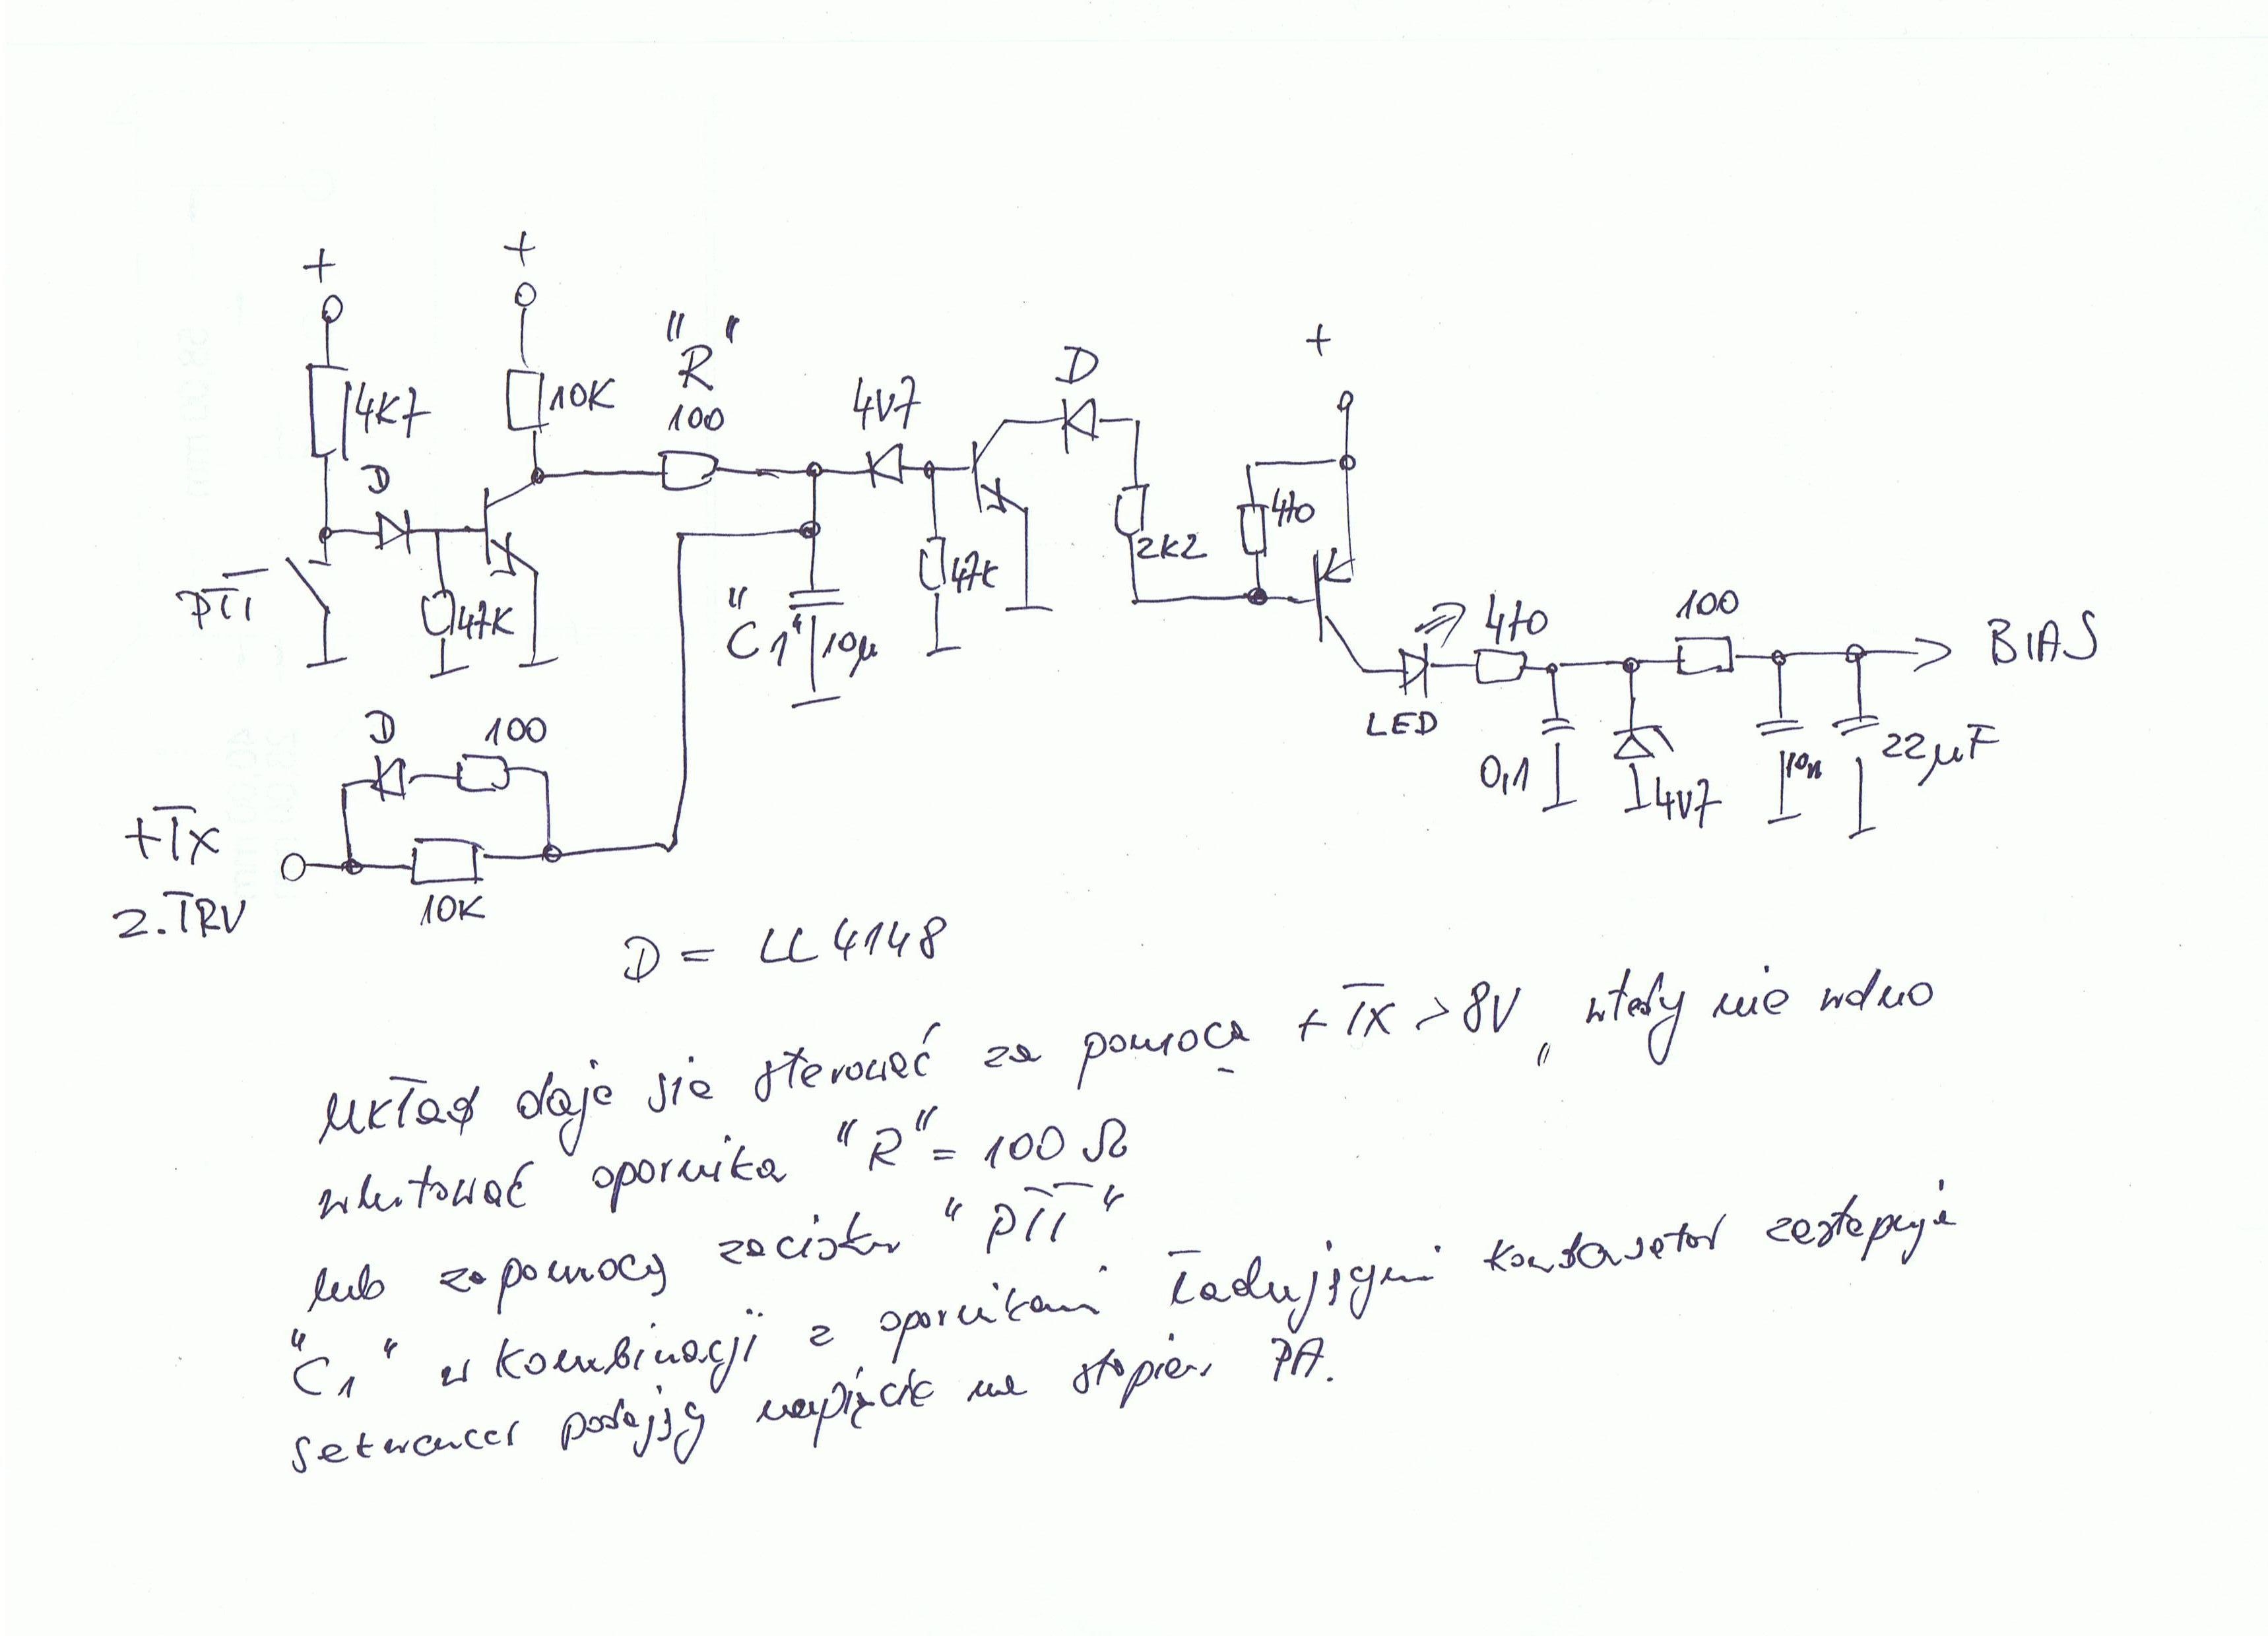 +
+
4K7
10K
"R"
100
D
PTT
47K
"C1"
10µ
4V7
47K
D
2K2
+
470
LED
470
0,1
4V7
100
10n
22µF
BIAS
D
100
+TX
Z.TRV
10K
D = LL4148
UKŁAD daje się sterować za pomocą +TX > 8V, wtedy nie wolno
wlutować opornika "R" = 100 Ω
lub za pomocą zacisku "PTT"
"C1" w kombinacji z opornikami ładującymi kondensator zastępuje
sekwencer podający napięcie na stopień PA.